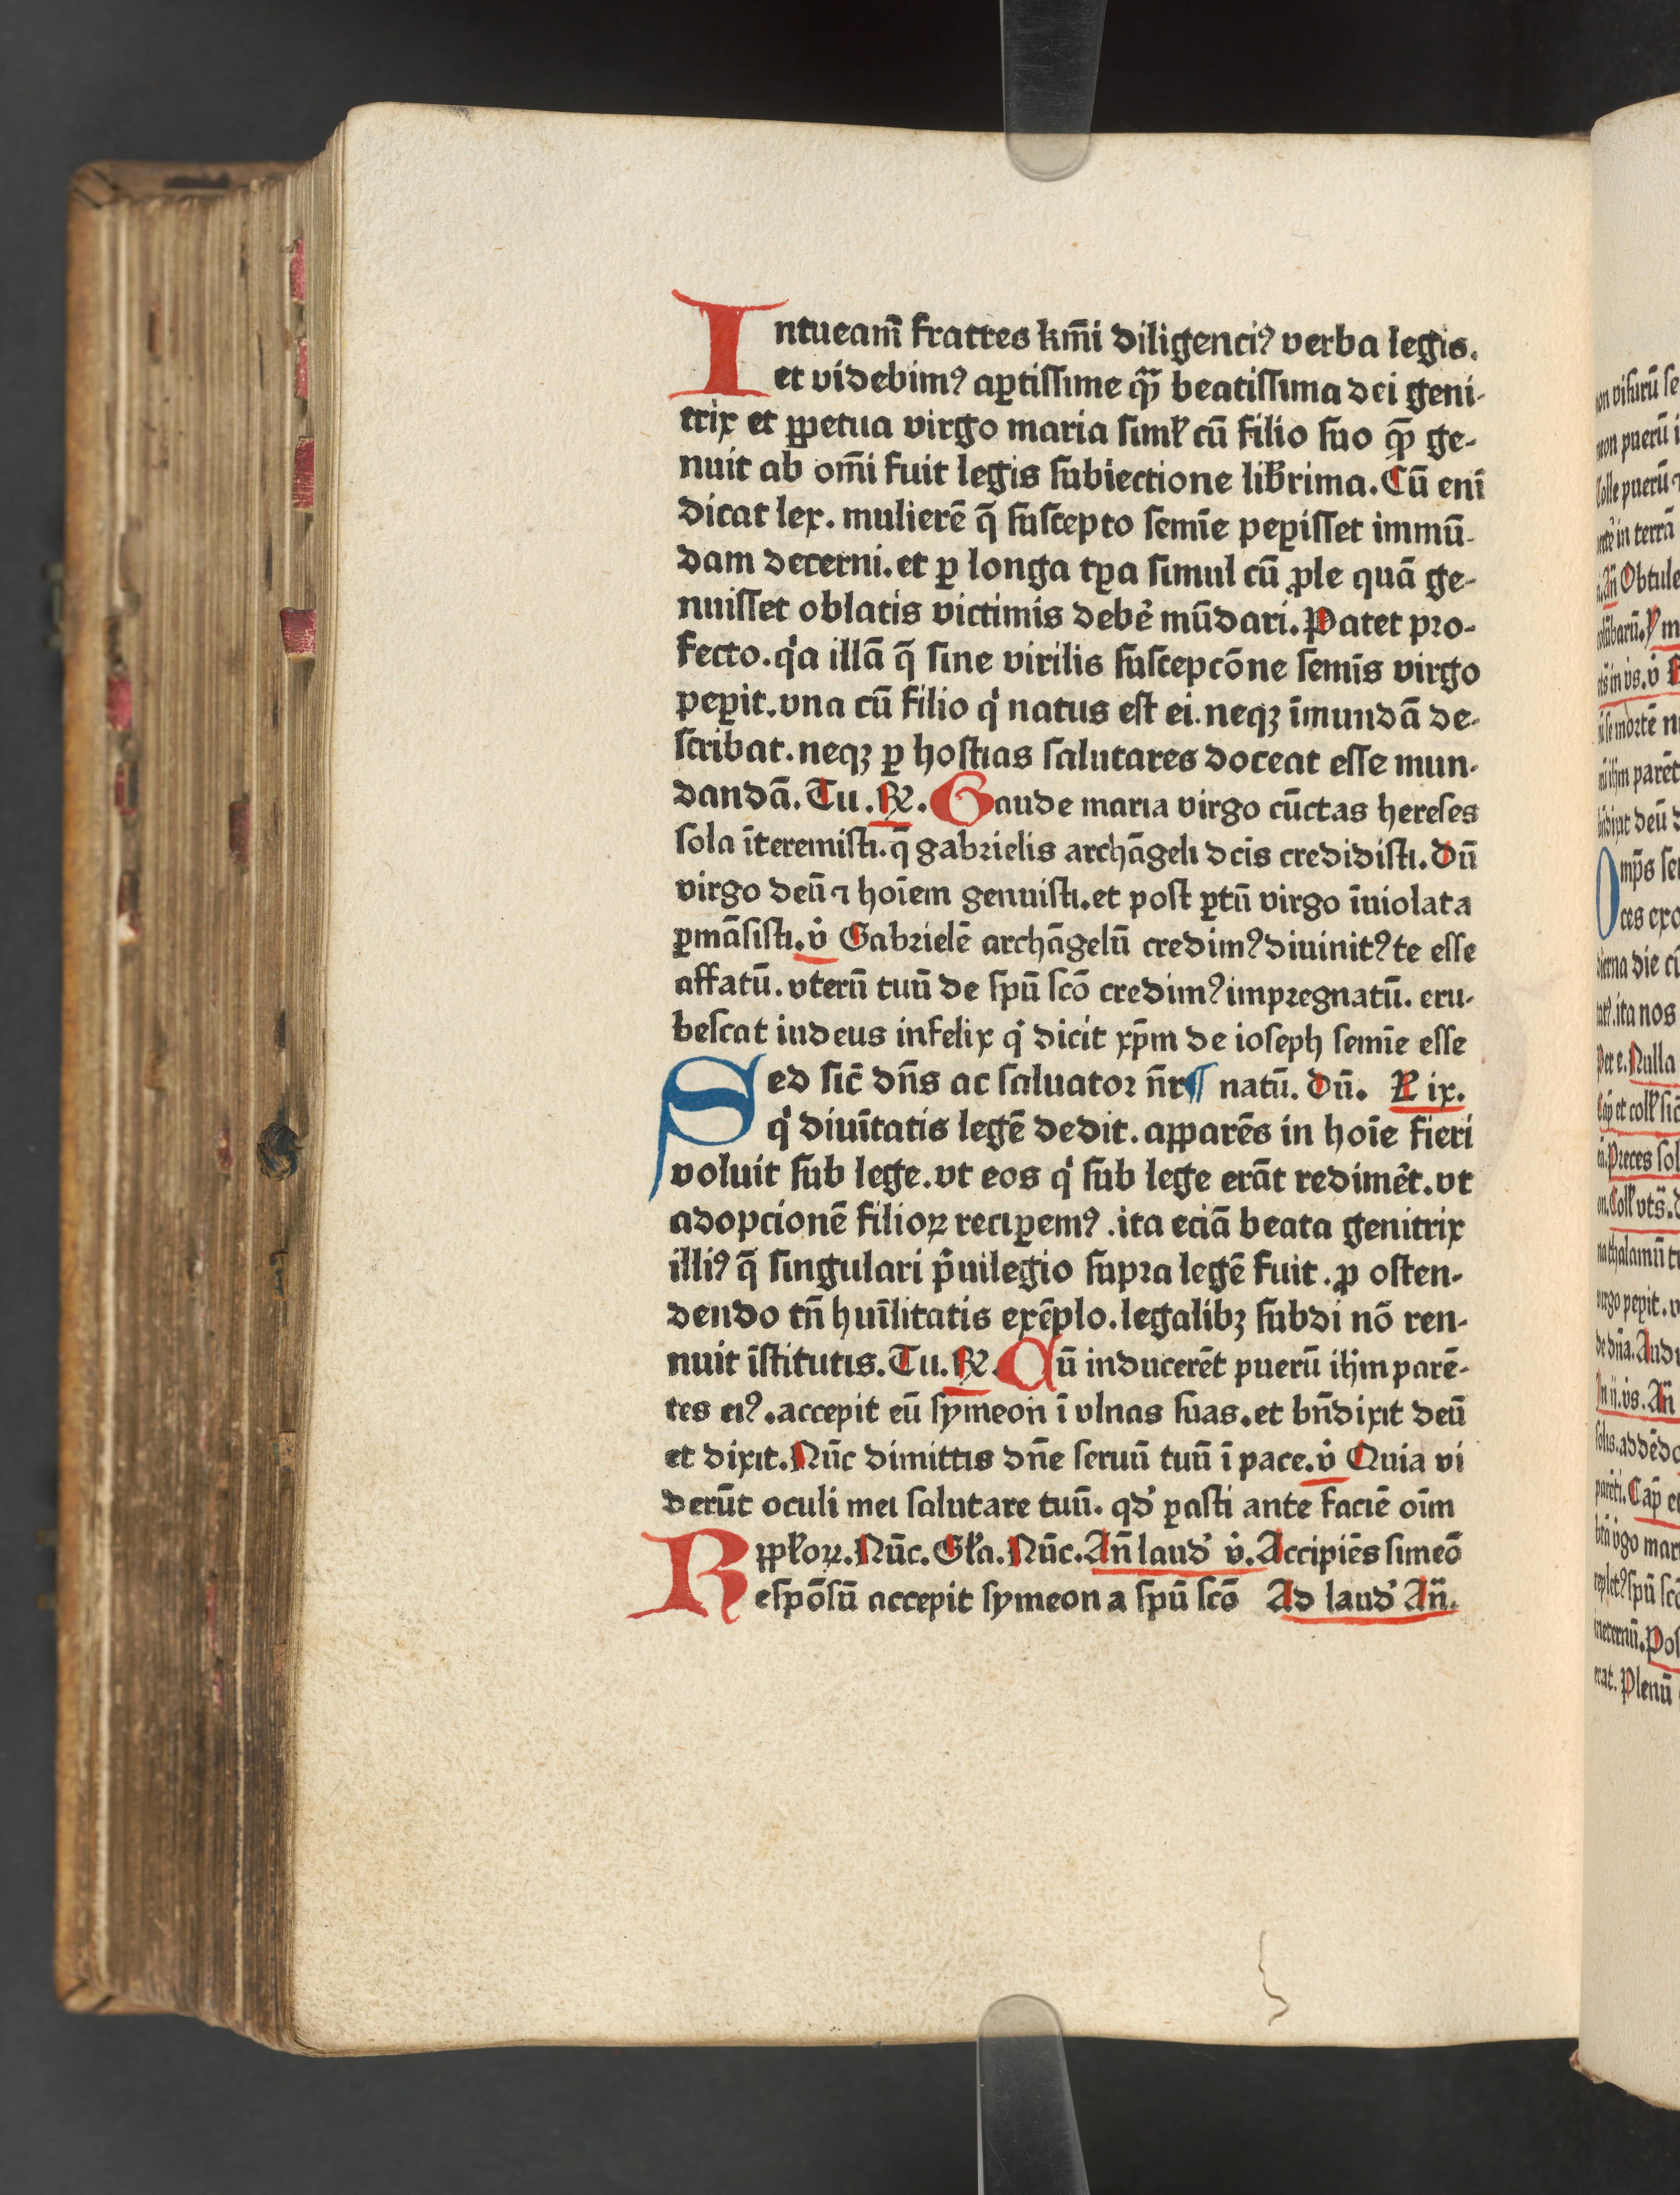 Intueam̄ fratres km̄i diligenciꝰ verba legis.
et videbimꝰ aꝑtissime qm̄ beatissima dei geni-
trix et ꝑpetua virgo maria siml̓ cū filio suo quē ge-
nuit ab om̄i fuit legis subiectione lib̓rima. Cū eni
dicat lex. mulierē q̄ suscepto semīe peꝑisset immū-
dam decerni. et ꝑ longa tꝑa simul cū ꝓle quā ge-
nuisset oblatis victimis debe᷑ mūdari. Patet pro-
fecto. qͥa illā q̄ sine virilis suscepcōne semīs virgo
peꝑit. vna cū filio qͥ natus est ei. neqꝫ īmundā de-
scribat. neqꝫ ꝑ hostias salutares doceat esse mun-
dandā. Tu. ℟. Gaude maria virgo cūctas hereses
sola īteremisti. q̄ gabrielis archāgeli dcīs credidisti. Dū
virgo deū ⁊ hoīem genuisti. et post ꝑtū virgo īuiolata
ꝑmāsisti. v̓ Gabrielē archāgelū credimꝰ diuinitꝰ te esse
affatū. vterū tuū de spū scō credimꝰ impregnatū. eru-
bescat iudeus infelix qͥ dicit xp̄m de ioseph semīe esse
Sed sic̄ dn̄s ac saluator nr̄ ¶ natū. Dū. L̷ ix.
qͥ diuītatis legē dedit. apparēs in hoīe fieri
voluit sub lege. vt eos qͥ sub lege erāt redime᷑t. vt
adopcionē filioꝝ reciꝑemꝰ. ita eciā beata genitrix
illiꝰ q̄ singulari pͥuilegio supra legē fuit. ꝓ osten-
dendo tn̄ huīlitatis exēplo. legalibꝫ subdi nō ren-
nuit īstitutis. Tu. ℟. Cū inducerēt puerū ihm̄ parē-
tes eiꝰ. accepit eū symeon ī vlnas suas. et bn̄dixit deū
et dixit. Nūc dimittis dn̄e seruū tuū ī pace. v̓ Quia vi
derūt oculi mei salutare tuū. qd̓ ꝑasti ante faciē oīm
ppl̓oꝝ. Nūc. Gl̓a. Nūc. An̄ laud̓ v̓. Accipiēs simeō
Respōsū accepit symeon a spū scō Ad laud̓ An̄.